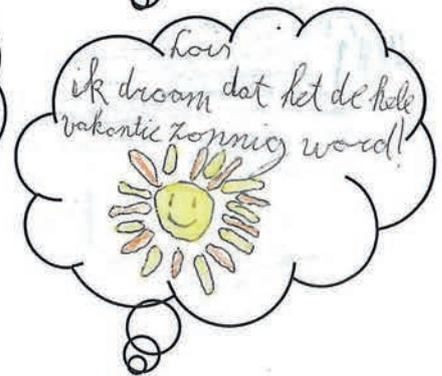 Loïs
ik droom dat het de hele
vakantie zonnig word!